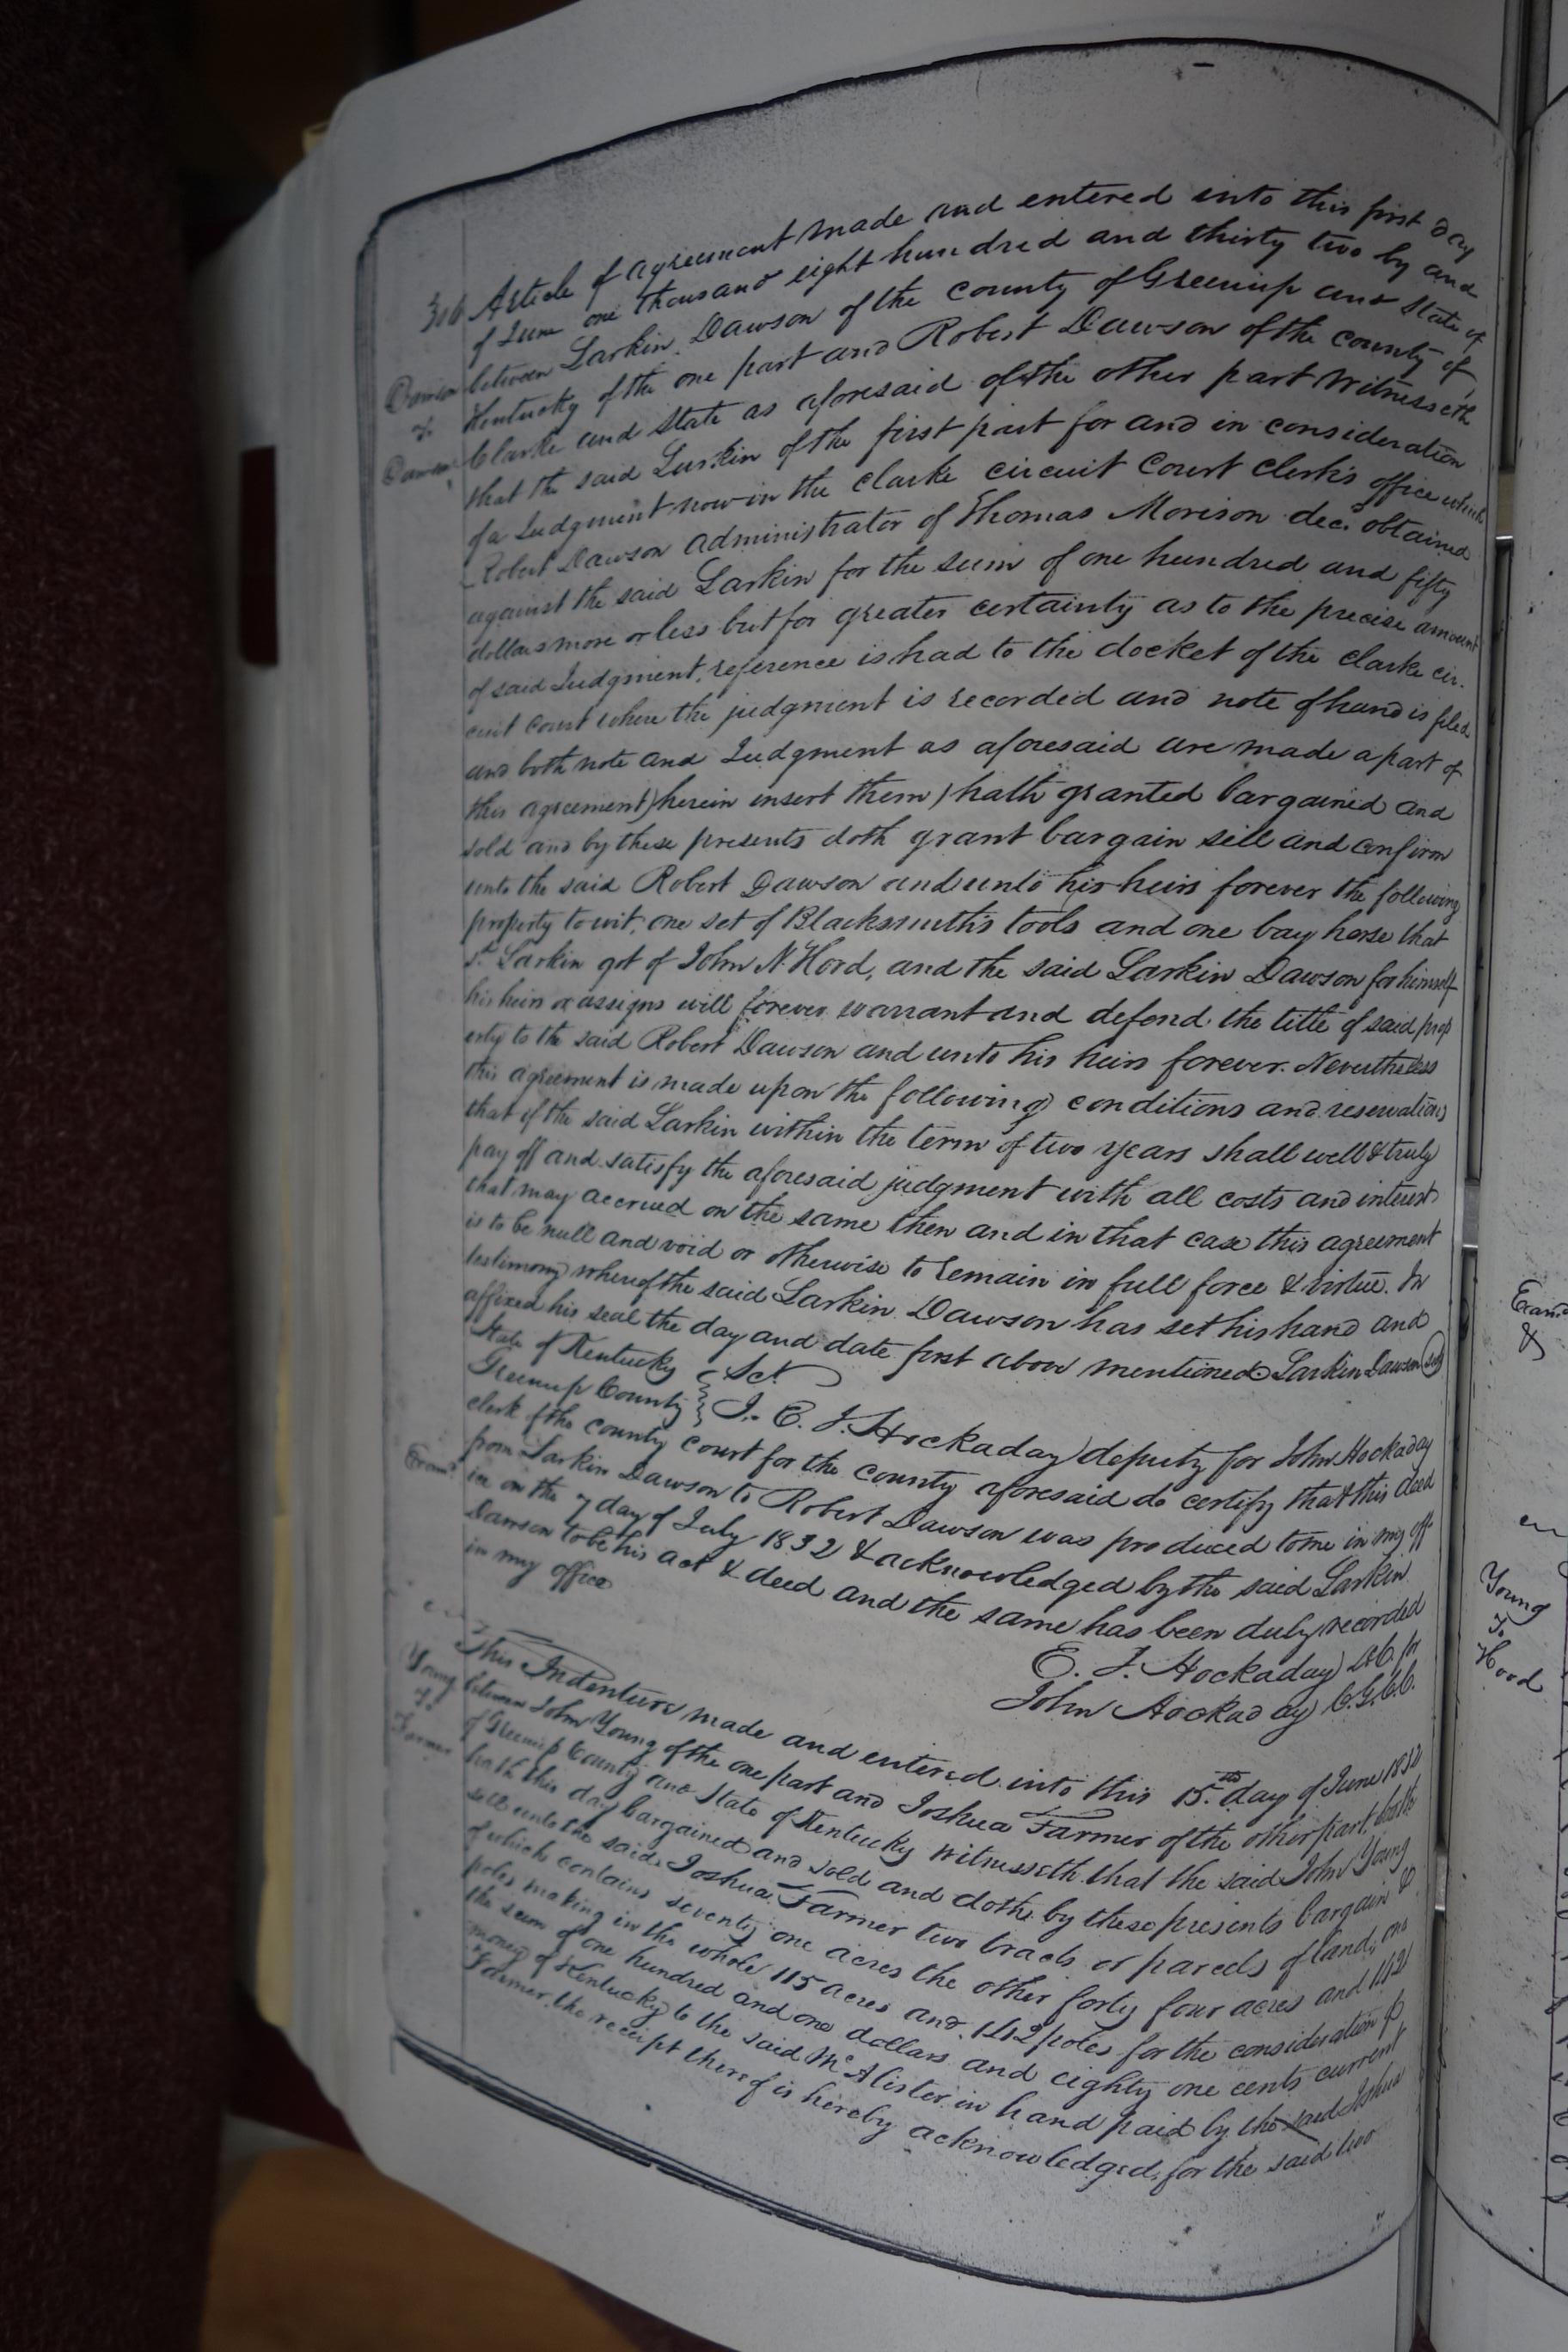 306 Article of agreement made and entered into this first day
of June one thousand eight hundred and thirty two by and
Dawson between Larkin Dawson of the county of Greenup and State of
To Kentucky of the one part and Robert Dawson of the county of
Dawson Clarke and State as aforesaid of the other part Witnesseth
that the said Larkin of the first part for and in consideration
of a Judgment now in the clarke circuit Court Clerk's office which
Robert Dawson administrator of Thomas Morison decd obtained
against the said Larkin for the sum of one hundred and fifty
dollars more or less but for greater certainty as to the precise amount
of said Judgment, reference is had to the docket of the clarke cir-
cuit court where the judgment is recorded and note of hand is filed
and both note and Judgment as aforesaid are made a part of
this agreement) herein insert them) hath granted bargained and
sold and by these presents doth grant bargain sell and confirm
unto the said Robert Dawson and unto his heirs forever the following
property to wit, one set of Blacksmith's tools and one bay horse that
sd Larkin got of John N. Hord, and the said Larkin Dawson for himself
his heirs or assigns will forever warrant and defend the title of said prop
erty to the said Robert Dawson and unto his heirs forever. Nevertheless
this agreement is made upon the following conditions and reservations
that if the said Larkin within the term of two years shall well & truly
pay off and satisfy the aforesaid judgment with all costs and interest
that may accrued on the same then and in that case this agreement
is to be null and void or otherwise to remain in full force & virtue. In
testimony whereof the said Larkin Dawson has set his hand and
affixed his seal the day and date first above mentioned Larkin Dawson seal
State of Kentucky } Sct.
Greenup County } I. E. J. Hockaday deputy for John Hockaday
clerk of the county court for the county aforesaid do certify that this deed
from Larkin Dawson to Robert Dawson was produced to me in my off
Examd ice on the 7 day of July 1832 & acknowledged by the said Larkin
Dawson to be his act & deed and the same has been duly recorded
in my office
E. J. Hockaday D.C. for
John Hockaday C.G.C.C.
This Indenture made and entered into this 15th day of June 1832
Young between John Young of the one part and Joshua Farmer of the other part, both
To of Greenup County and State of Kentucky Witnesseth that the said John Young
Farmer hath this day bargained and sold and doth by these presents bargain &
sell unto the said Joshua Farmer two tracts or parcels of land, one
of which contains seventy one acres the other forty four acres and 142
poles making in the whole 115 acres and 142 poles for the consideration of
the sum of one hundred and one dollars and eighty one cents current
money of Kentucky to the said McAlister in hand paid by the said Joshua
Farmer, the receipt thereof is hereby acknowledged, for the said two
Young
To
Hood